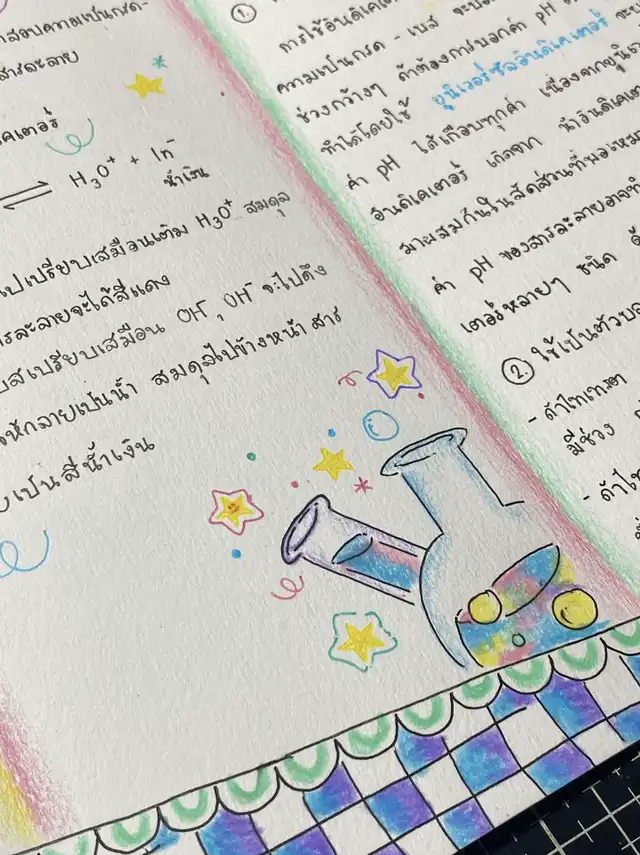 สอบความเป็นกรด-
สารละลาย
⇌ H₃O⁺ + In⁻
น้ำเงิน
ไปเปรียบเสมือนเติม H₃O⁺ สมดุล
สารละลายจะได้สีแดง
เบสเปรียบเสมือน OH⁻, OH⁻ จะไปดึง
กลายเป็นน้ำ สมดุลไปข้างหน้า สาร
เป็นสีน้ำเงิน
1.
การใช้อินดิเคเ
ความเป็นกรด - เบส จะบอ
ช่วงกว้างๆ ถ้าต้องการบอกค่า pH
ทำได้โดยใช้ ยูนิเวอร์ซัลอินดิเคเตอร์ จะ
ค่า pH ได้เกือบทุกค่า เนื่องจากยูนิเว
อินดิเคเตอร์ เกิดจาก นำอินดิเคเต
มาผสมกันในสัดส่วนที่พอเหม
ค่า pH ของสารละลายอาจ
เตอร์หลายๆ ชนิด
2. ใช้เป็นตัวบ
- ถ้าไทเทรต
มีช่วง
- ถ้าไท